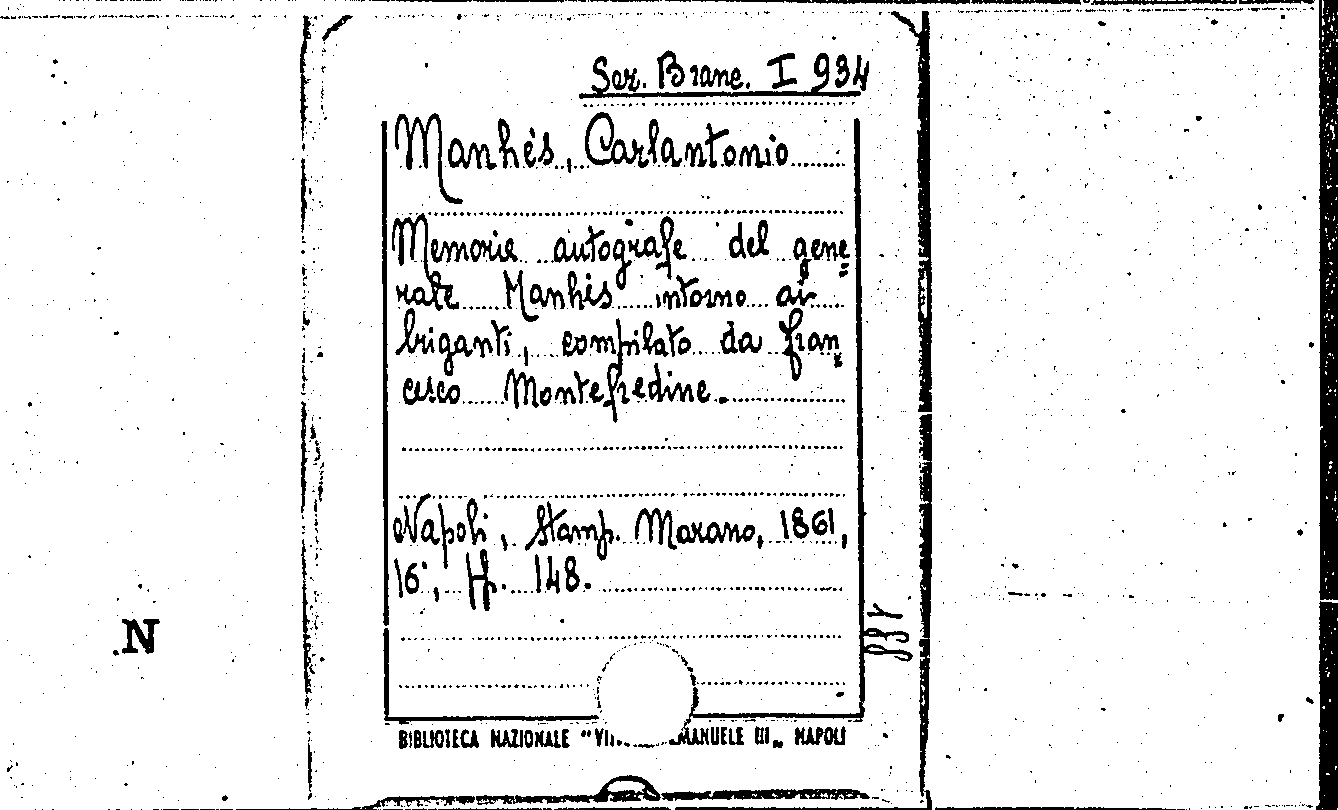 Ser. Branc. I 934
Manhés, Carlantonio
Memorie autografe del gene=
rale Manhés intorno ai
briganti, compilato da fran=
cesco Montefredine.
Napoli, Stamp. Marano, 1861,
16°, pp. 148.
N
BIBLIOTECA NAZIONALE "VI EMANUELE III„ NAPOLI